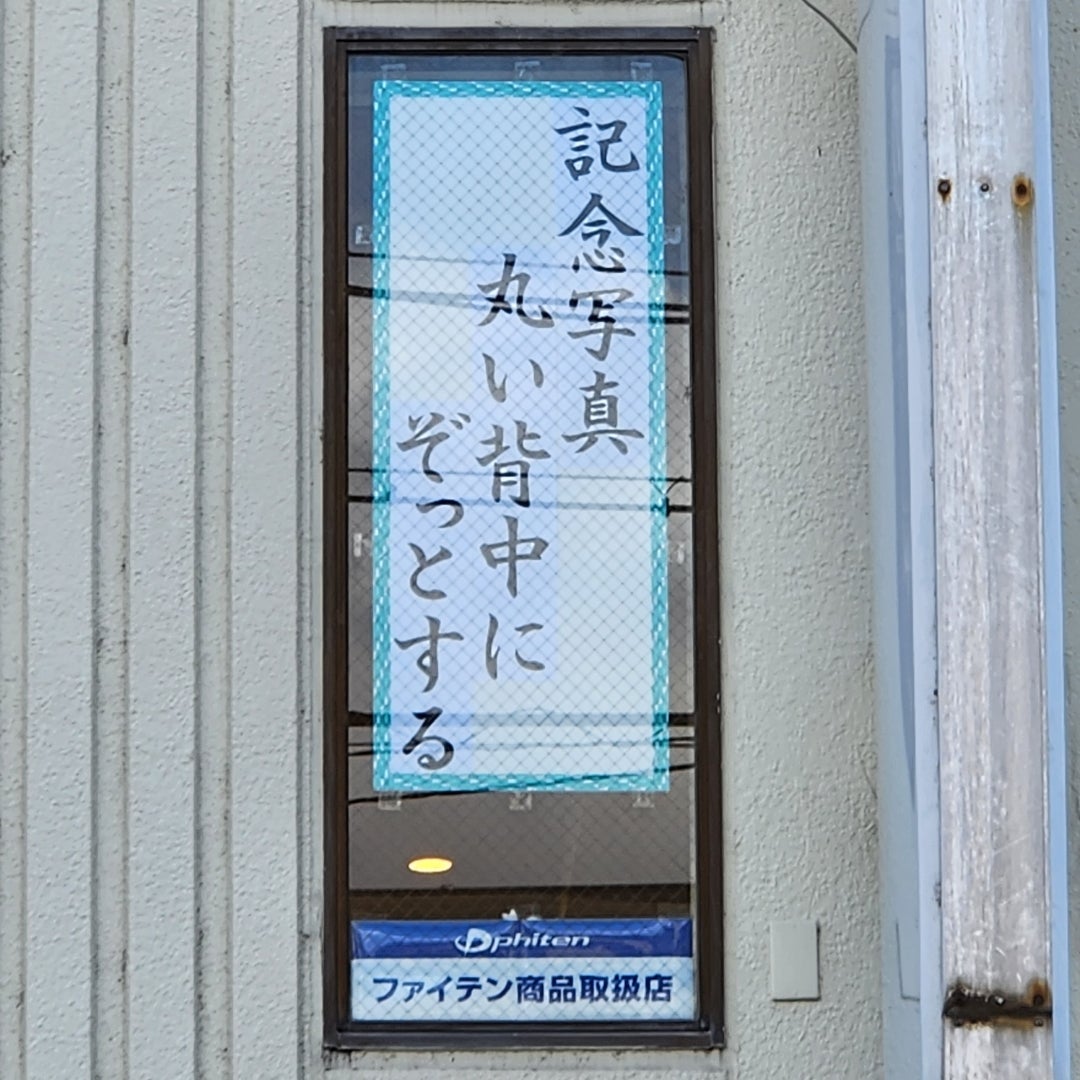 記念写真
丸い背中に
ぞっとする
phiten
ファイテン商品取扱店